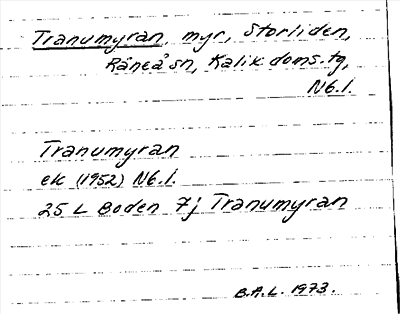 Tranumyran, myr, Storliden,
Råneå sn, Kalix doms.tg,
Nb.l.
Tranumyran
ek (1952) Nb.l.
25 L Boden 7j Tranumyran
B.A.L. 1973.